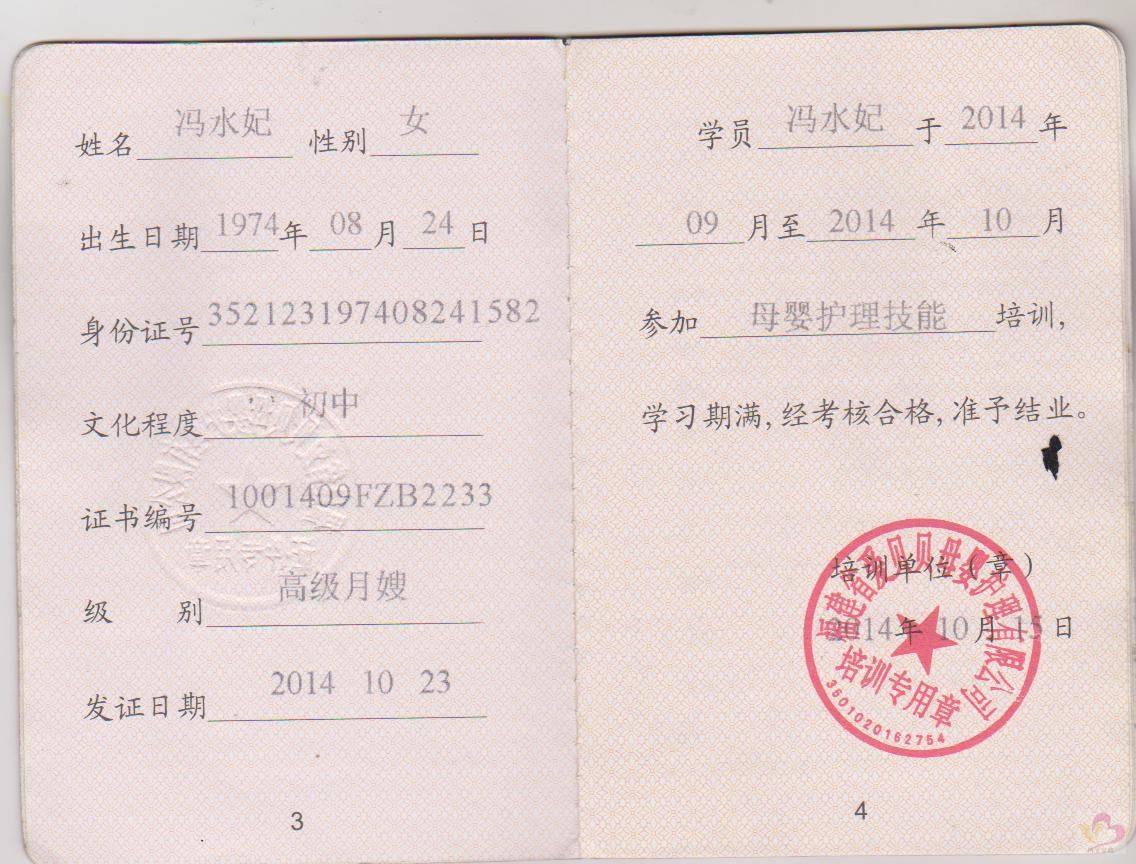 姓名 冯水妃 性别 女
出生日期 1974 年 08 月 24 日
身份证号 352123197408241582
文化程度 初中
证书编号 1001409FZB2233
级 别 高级月嫂
发证日期 2014 10 23
3
学员 冯水妃 于 2014 年
09 月至 2014 年 10 月
参加 母婴护理技能 培训,
学习期满,经考核合格,准予结业。
培训单位(章)
2014 年 10 月 15 日
福建省爱贝贝母婴护理有限公司
培训专用章
3501020162754
4